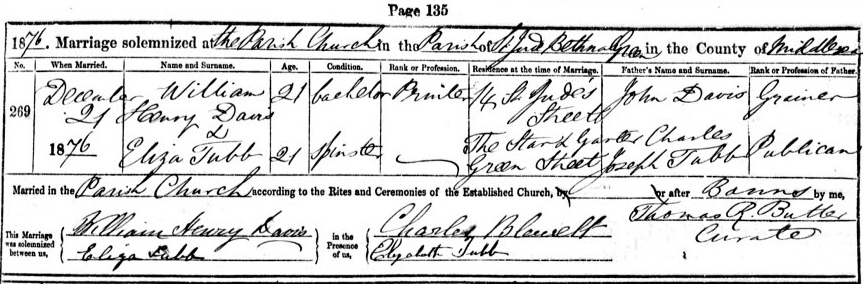 Page 135
1876. Marriage solemnized at the Parish Church in the Parish of St Jude Bethnal Green in the County of Middlesex
No. When Married. Name and Surname. Age. Condition. Rank or Profession. Residence at the time of Marriage. Father's Name and Surname. Rank or Profession of Father.
269 December 21 1876 William Henry Davis 21 bachelor Printer 14 St Judes Street John Davis Grainer
& Eliza Tubb 21 Spinster — The Star & Garter Green Street Charles Joseph Tubb Publican
Married in the Parish Church according to the Rites and Ceremonies of the Established Church, by or after Banns by me,
This Marriage was solemnized between us, William Henry Davis Eliza Tubb in the Presence of us, Charles Blewett Elizabeth Tubb Thomas R. Butler Curate